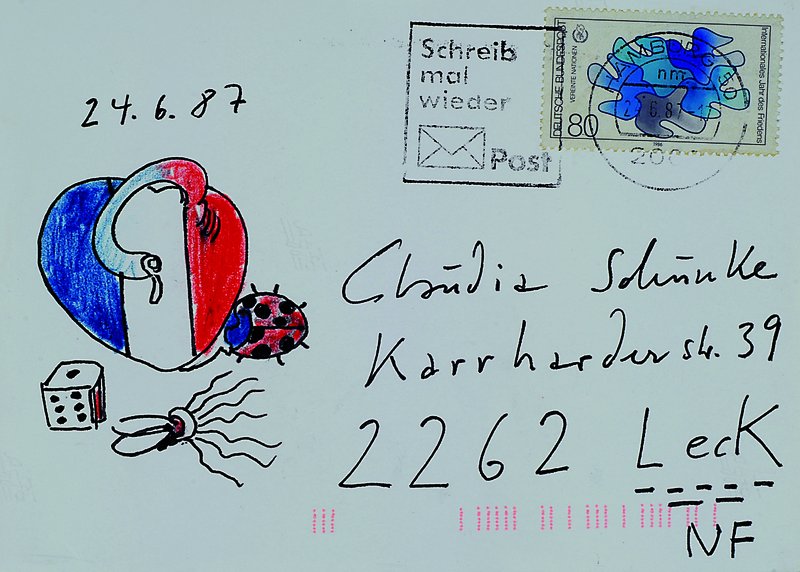 24.6.87
Schreib
mal
wieder
Post
DEUTSCHE BUNDESPOST
VEREINTE NATIONEN
80
Internationales Jahr des Friedens
1986
HAMBURG
nm
24.6.87-17
Claudia Schunke
Karrharder str. 39
2262 Leck
NF